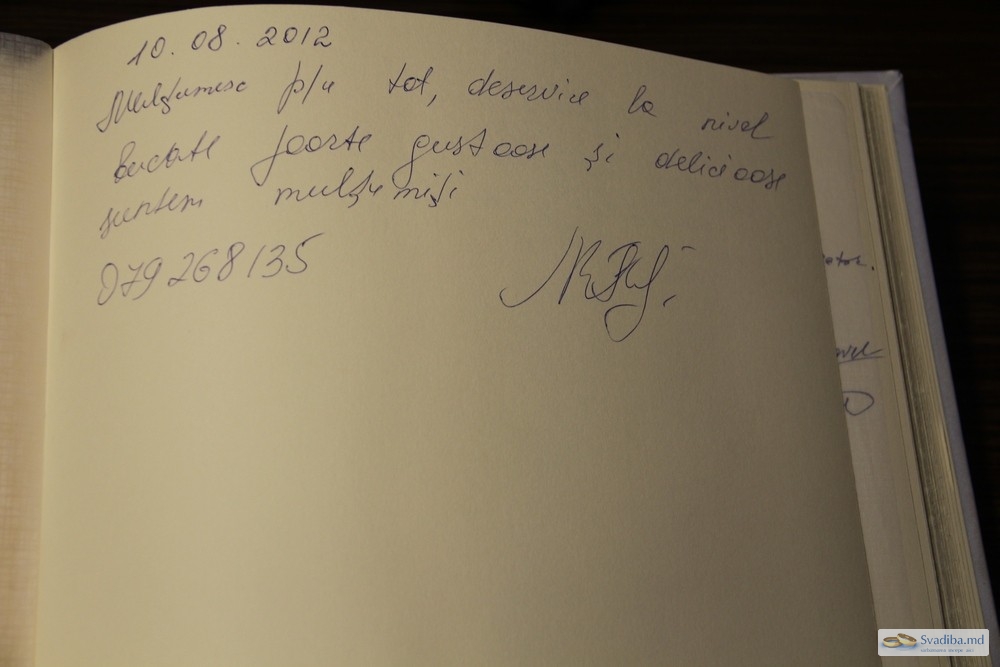 10.08.2012
Mulţumesc p/u tot, deservice la nivel
bucate foarte gustoase şi delicioase
suntem mulţumiţi
079268135
Svadiba.md